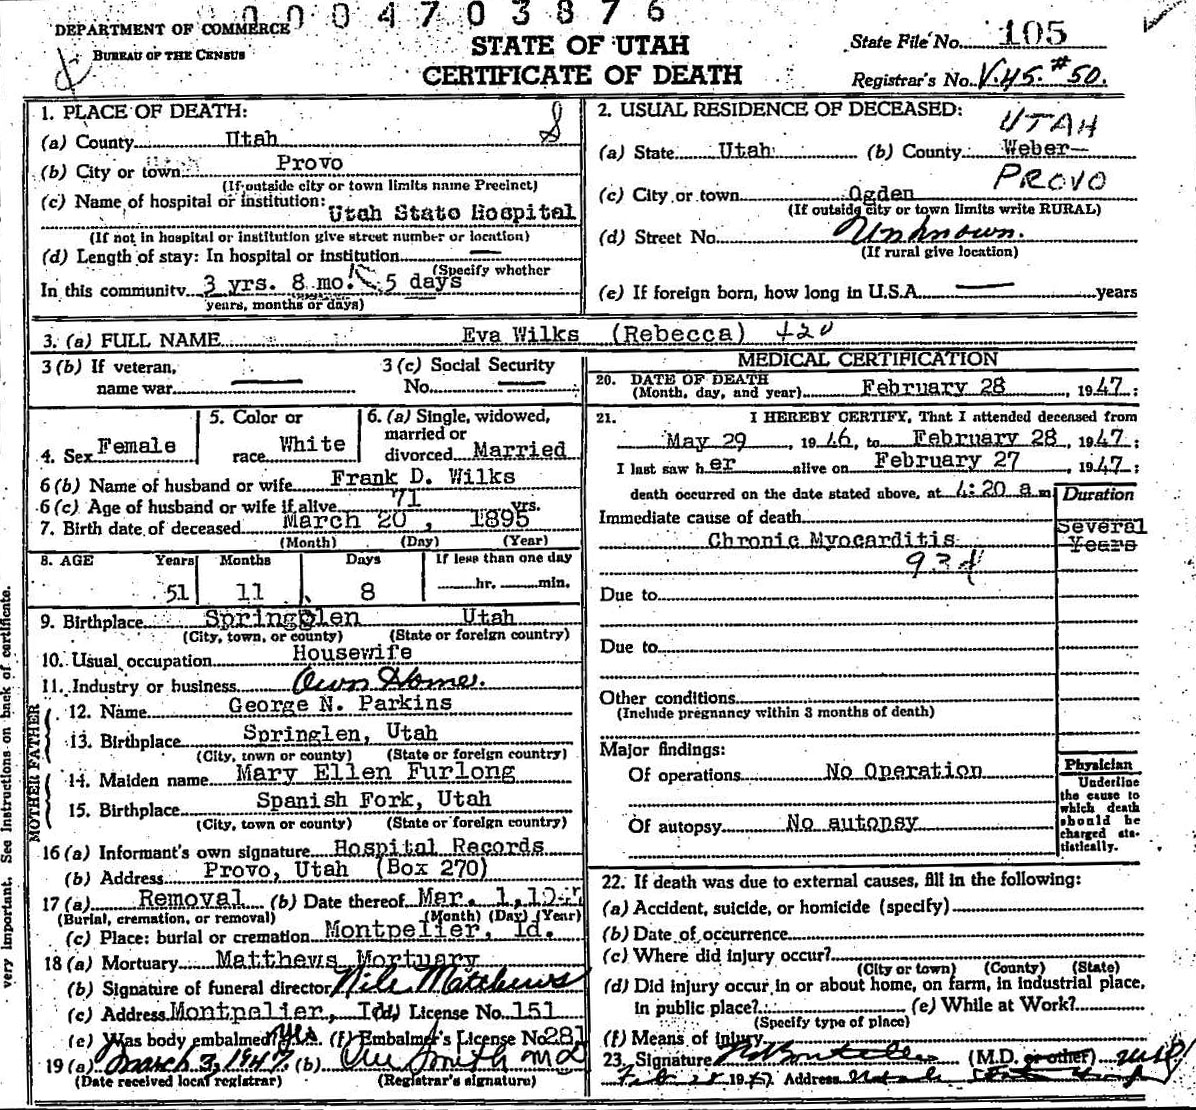 0004703876
DEPARTMENT OF COMMERCE
BUREAU OF THE CENSUS
STATE OF UTAH
CERTIFICATE OF DEATH
State File No. 105
Registrar's No. V.45.#50.
1. PLACE OF DEATH:
(a) County Utah
(b) City or town Provo
(If outside city or town limits name Precinct)
(c) Name of hospital or institution:
Utah State Hospital
(If not in hospital or institution give street number or location)
(d) Length of stay: In hospital or institution —
(Specify whether
In this community 3 yrs. 8 mo. 5 days
years, months or days)
2. USUAL RESIDENCE OF DECEASED:
UTAH
(a) State Utah (b) County Weber
PROVO
(c) City or town Ogden
(If outside city or town limits write RURAL)
(d) Street No. Unknown.
(If rural give location)
(e) If foreign born, how long in U.S.A. — years
3. (a) FULL NAME Eva Wilks (Rebecca) 420
3 (b) If veteran, name war —
3 (c) Social Security No. —
4. Sex Female
5. Color or race White
6. (a) Single, widowed, married or divorced Married
6 (b) Name of husband or wife Frank D. Wilks
6 (c) Age of husband or wife if alive 71 yrs.
7. Birth date of deceased March 20, 1895
(Month) (Day) (Year)
8. AGE Years Months Days If less than one day
51 11 8 hr. min.
9. Birthplace Springglen Utah
(City, town, or county) (State or foreign country)
10. Usual occupation Housewife
11. Industry or business Own Home.
FATHER
12. Name George N. Parkins
13. Birthplace Springlen, Utah
(City, town or county) (State or foreign country)
MOTHER
14. Maiden name Mary Ellen Furlong
15. Birthplace Spanish Fork, Utah
(City, town or county) (State or foreign country)
16 (a) Informant's own signature Hospital Records
(b) Address Provo, Utah (Box 270)
17 (a) Removal (b) Date thereof Mar. 1, 194
(Burial, cremation, or removal) (Month) (Day) (Year)
(c) Place: burial or cremation Montpelier, Id.
18 (a) Mortuary Matthews Mortuary
(b) Signature of funeral director Nile Matthews
(c) Address Montpelier, Id (d) License No. 151
(e) Was body embalmed? yes. (f) Embalmer's License No. 281
19 (a) March 3, 1947. (b) Smith MD
(Date received local registrar) (Registrar's signature)
MEDICAL CERTIFICATION
20. DATE OF DEATH
(Month, day, and year) February 28, 1947;
21. I HEREBY CERTIFY, That I attended deceased from
May 29, 1946, to February 28 1947;
I last saw her alive on February 27, 1947;
death occurred on the date stated above, at 4:20 a m
Duration
Immediate cause of death
Several
Chronic Myocarditis Years
93d
Due to
Due to
Other conditions
(Include pregnancy within 3 months of death)
Major findings:
Of operations No Operation
Of autopsy No autopsy
Physician
Underline
the cause to
which death
should be
charged sta-
tistically.
22. If death was due to external causes, fill in the following:
(a) Accident, suicide, or homicide (specify)
(b) Date of occurrence
(c) Where did injury occur?
(City or town) (County) (State)
(d) Did injury occur in or about home, on farm, in industrial place,
in public place? (e) While at Work?
(Specify type of place)
(f) Means of injury
23 Signature (M.D. or other)
Feb 28 1947 Address
very important. See Instructions on back of certificate.